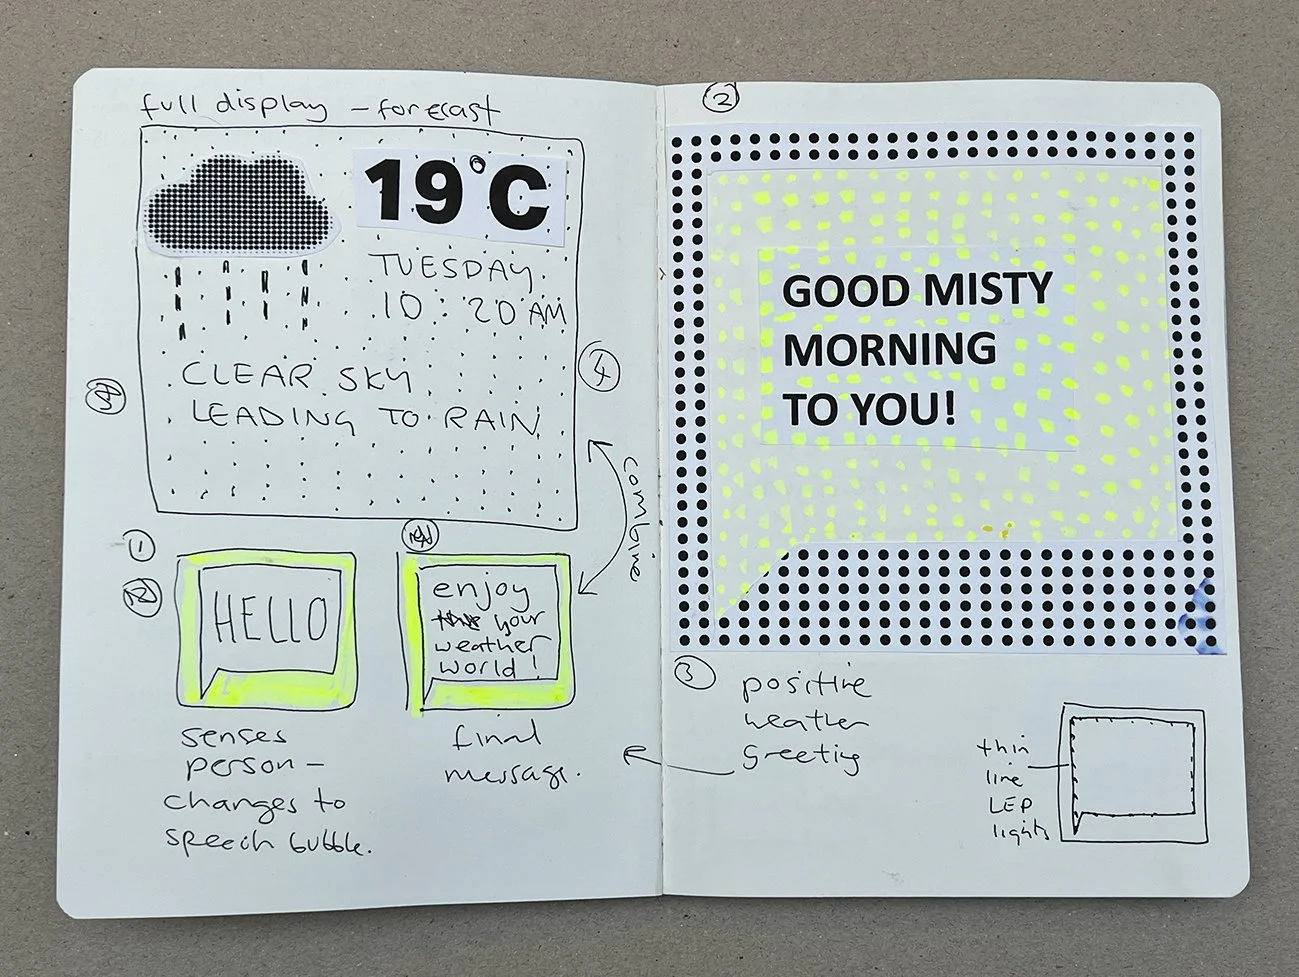 full display - forecast
19°C
TUESDAY
10:20 AM
CLEAR SKY
LEADING TO RAIN
4
combine
1
HELLO
senses
person -
changes to
speech bubble.
enjoy
your
weather
world!
final
message.
2
GOOD MISTY
MORNING
TO YOU!
3
positive
weather
greeting
thin
line
LED
lights